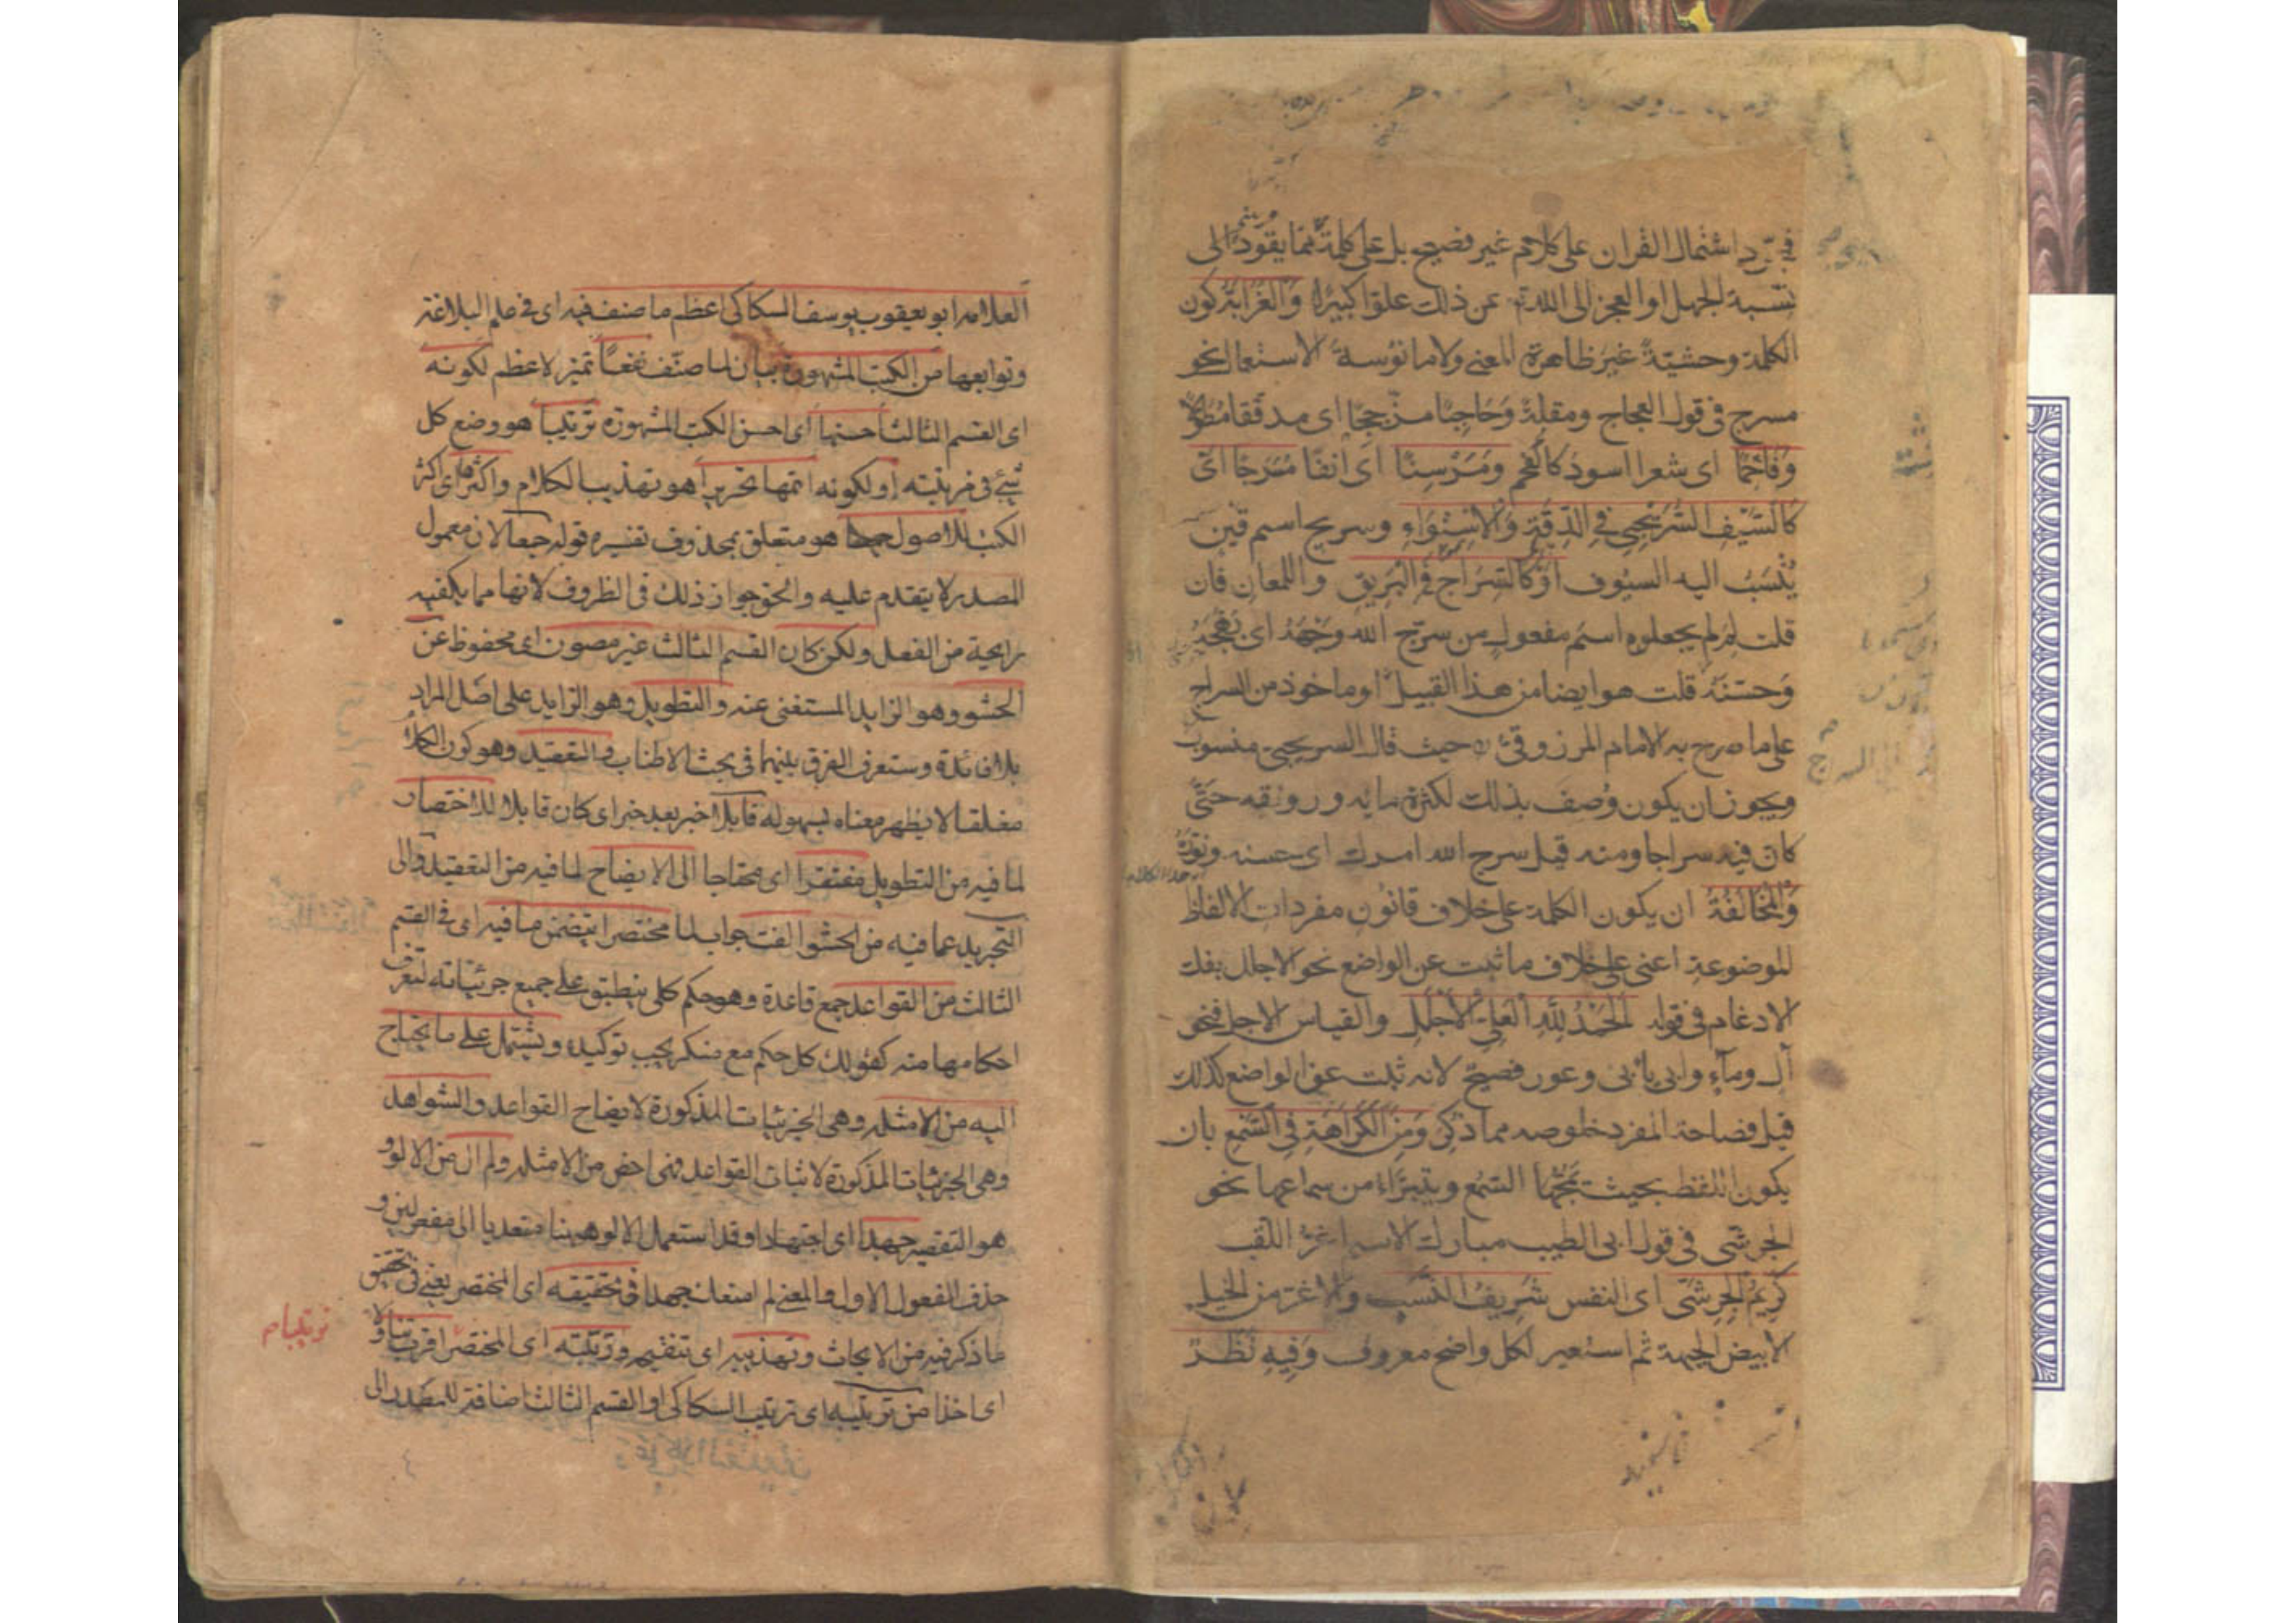 فمجرد اشتمال القران على كلام غير فصيح بل على كلمة مما يقود الى
نسبة الجهل او العجز الى الله تع عن ذلك علوا كبيرا والغرابة كون
الكلمة وحشية غير ظاهرة المعنى ولا مانوسة الاستعمال نحو
مسرج فى قول العجاج ومقلة وحاجبا مزججا اى مدققا مطولا
وفاحما اى شعرا اسود كالفحم ومرسنا اى انفا مسرجا اى
كالسيف السريجى فى الدقة والاستواء وسريج اسم قين
ينسب اليه السيوف او كالسراج فى البريق واللمعان فان
قلت لم لم يجعلوه اسم مفعول من سرج الله وجهه اى بهجه
وحسنه قلت هو ايضا من هذا القبيل او ماخوذ من السراج
على ما صرح به الامام المرزوقى ره حيث قال السريجى منسوب
ويجوز ان يكون وصف بذلك لكثرة مايه ورونقه حتى
كان فيه سراجا ومنه قيل سرج الله امرك اى حسنه ونوره
والمخالفة ان يكون الكلمة على خلاف قانون مفردات الالفاظ
الموضوعة اعنى على خلاف ما ثبت عن الواضع نحو الاجلل بفك
الادغام فى قوله الحمد لله العلى الاجلل والقياس الاجل فنحو
آل وماء وابى يابى وعور فصيح لانه ثبت عن الواضع كذلك
قيل فصاحة المفرد خلوصه مما ذكر ومن الكراهة فى السمع بان
يكون اللفظ بحيث يمجها السمع ويتبراء من سماعها نحو
الجرشى فى قول ابى الطيب مبارك الاسم اغر اللقب
كريم الجرشى اى النفس شريف النسب والاغر من الخيل
الابيض الجبهة ثم استعير لكل واضح معروف وفيه نظر
العلامه ابو يعقوب يوسف السكاكى اعظم ما صنف فيه اى فى علم البلاغة
وتوابعها من الكتب المشهورة بيان لما صنف نفعا تميز لاعظم لكونه
اى القسم الثالث احسنها اى احسن الكتب المشهورة ترتيبا هو وضع كل
شئ فى مرتبته او لكونه اتمها تحريرا هو تهذيب الكلام واكثرها اى اكثر
الكتب للاصول جمعا هو متعلق بمحذوف تفسيره قوله جمعا لان معمول
المصدر لا يتقدم عليه والحق جواز ذلك فى الظروف لانها مما يكفيه
رايحة من الفعل ولكن كان القسم الثالث غير مصون اى محفوظ عن
الحشو وهو الزايد المستغنى عنه والتطويل وهو الزايد على اصل المراد
بلا فائدة وستعرف الفرق بينهما فى بحث الاطناب والتعقيد وهو كون الكلام
مغلقا لا يظهر معناه بسهولة قابلا خبر بعد خبر اى كان قابلا للاختصار
لما فيه من التطويل مفتقرا اى محتاجا الى الايضاح لما فيه من التعقيد والى
التجريد عما فيه من الحشو الفت جواب لما مختصرا يتضمن ما فيه اى فى القسم
الثالث من القواعد جمع قاعدة وهو حكم كلى ينطبق على جميع جزئياته لتعرف
احكامها منه كقولك كل حكم مع منكر يجب توكيده ويشتمل على ما يحتاج
اليه من الامثلة وهى الجزئيات المذكورة لايضاح القواعد والشواهد
وهى الجزئيات المذكورة لاثبات القواعد فهى اخص من الامثله ولم ال من الالو
هو التقصير جهدا اى اجتهادا وقد استعمل الالو ههنا متعديا الى مفعولين و
حذف المفعول الاول والمعنى لم امنعك جهدا فى تحقيقه اى المختصر يعنى فى تحقيق
ما ذكر فيه من الابحاث وتهذيبه اى تنقيحه ورتبته اى المختصر اقرب تناولا
ترتيبا م
اى اخذا من ترتيبه اى ترتيب السكاكى او القسم الثالث اضافة للمصدر الى